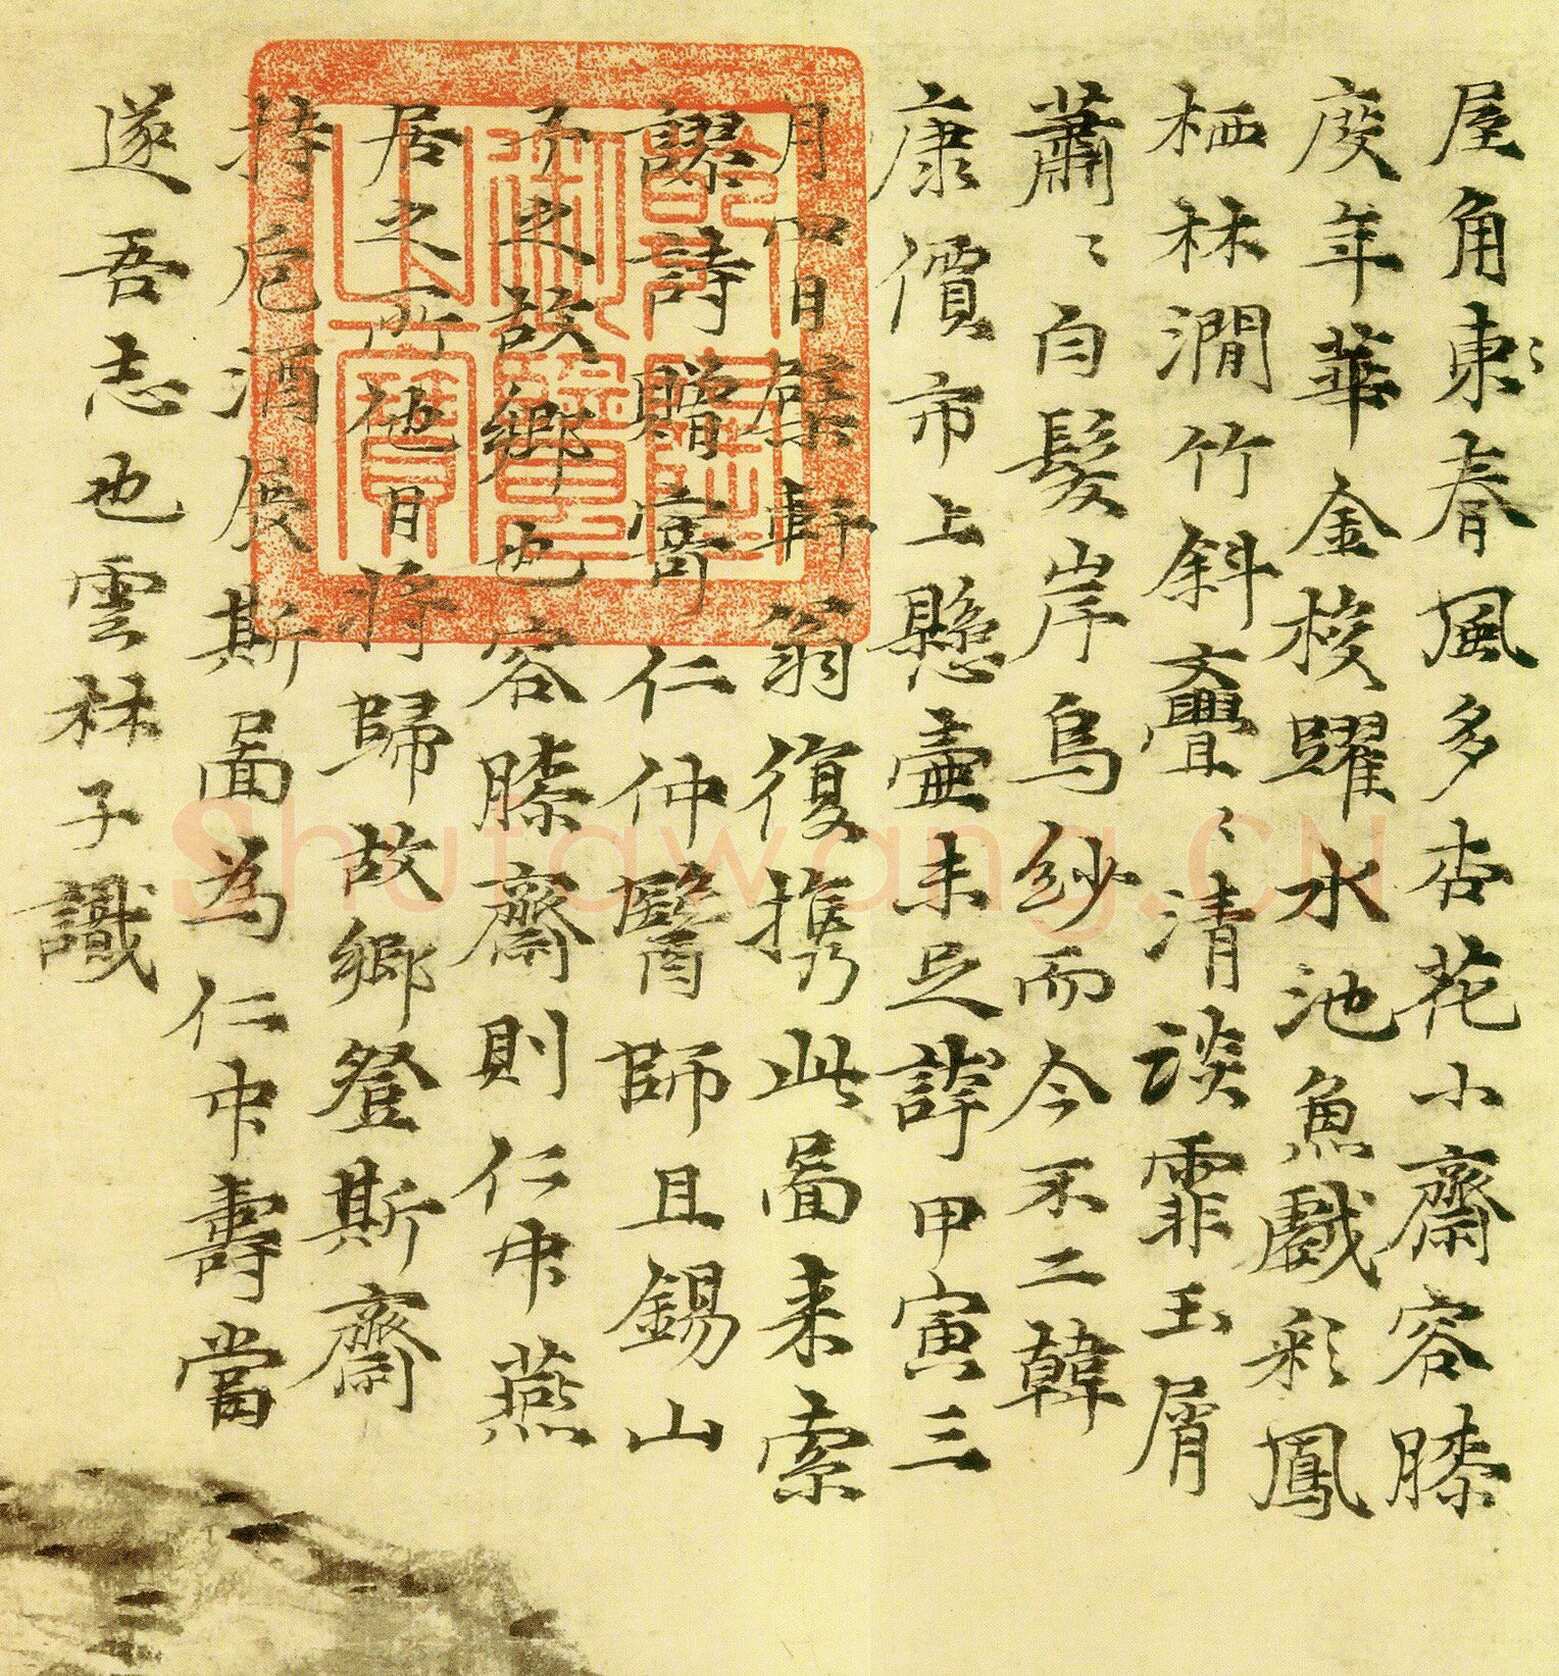 屋角東〻春風多杏花小齋容膝
度年華金梭躍水池魚戲彩鳳
栖林澗竹斜亹〻清談霏玉屑
蕭〻白髮岸烏紗而今不二韓
康價市上懸壺未足誇甲寅三
月四日檗軒翁復攜此圖来索
謬詩贈寄仁仲醫師且錫山
予之故鄉也容膝齋則仁仲燕
居之所他日將歸故鄉登斯齋
持卮酒展斯圖為仁仲壽當
遂吾志也雲林子識
乾隆御覽之寶
Shufawang.CN